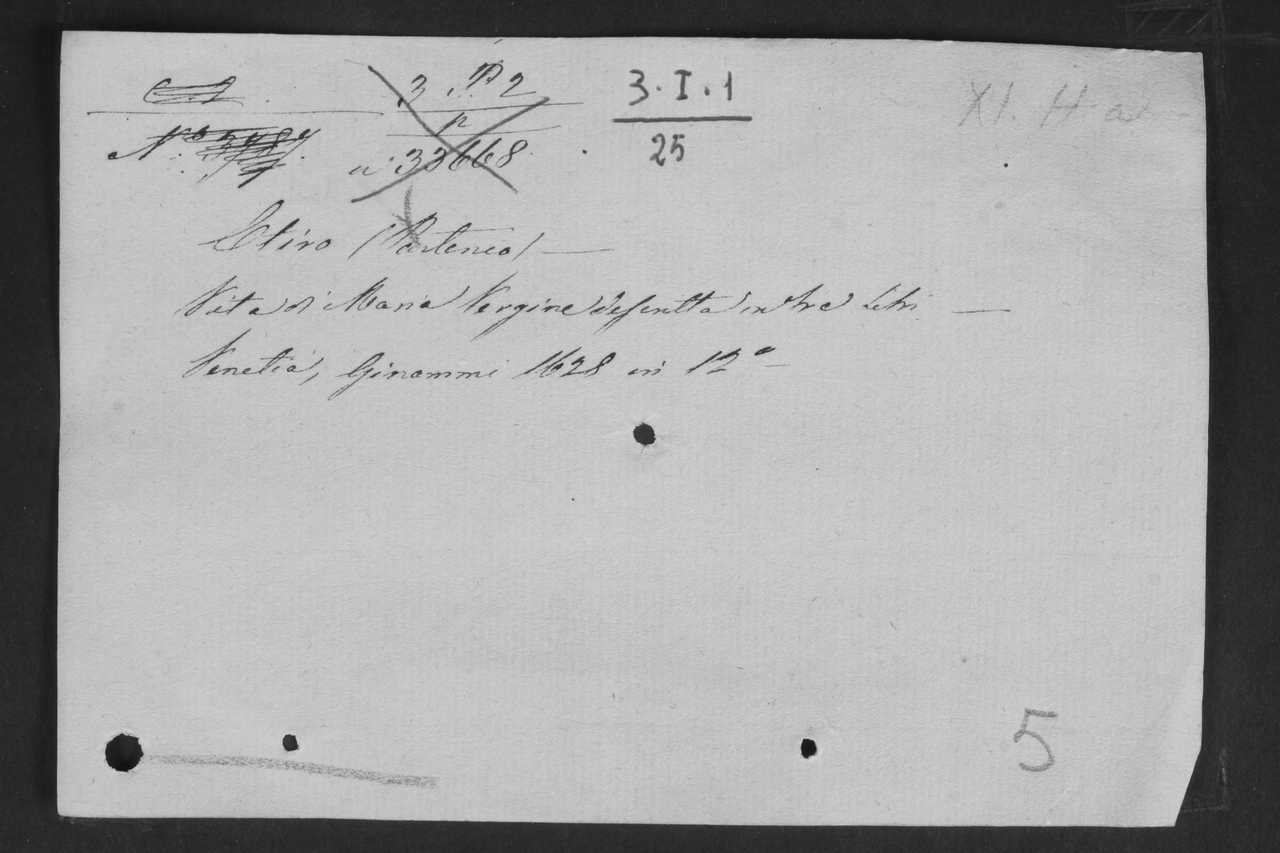 3 P 2
3 . I . 1
XI. H a
p
25
N° 3787
a 33668
Etiro (Partenio) —
Vita di Maria Vergine descritta in tre Libri —
Venetia, Ginammi 1628 in 12° —
5